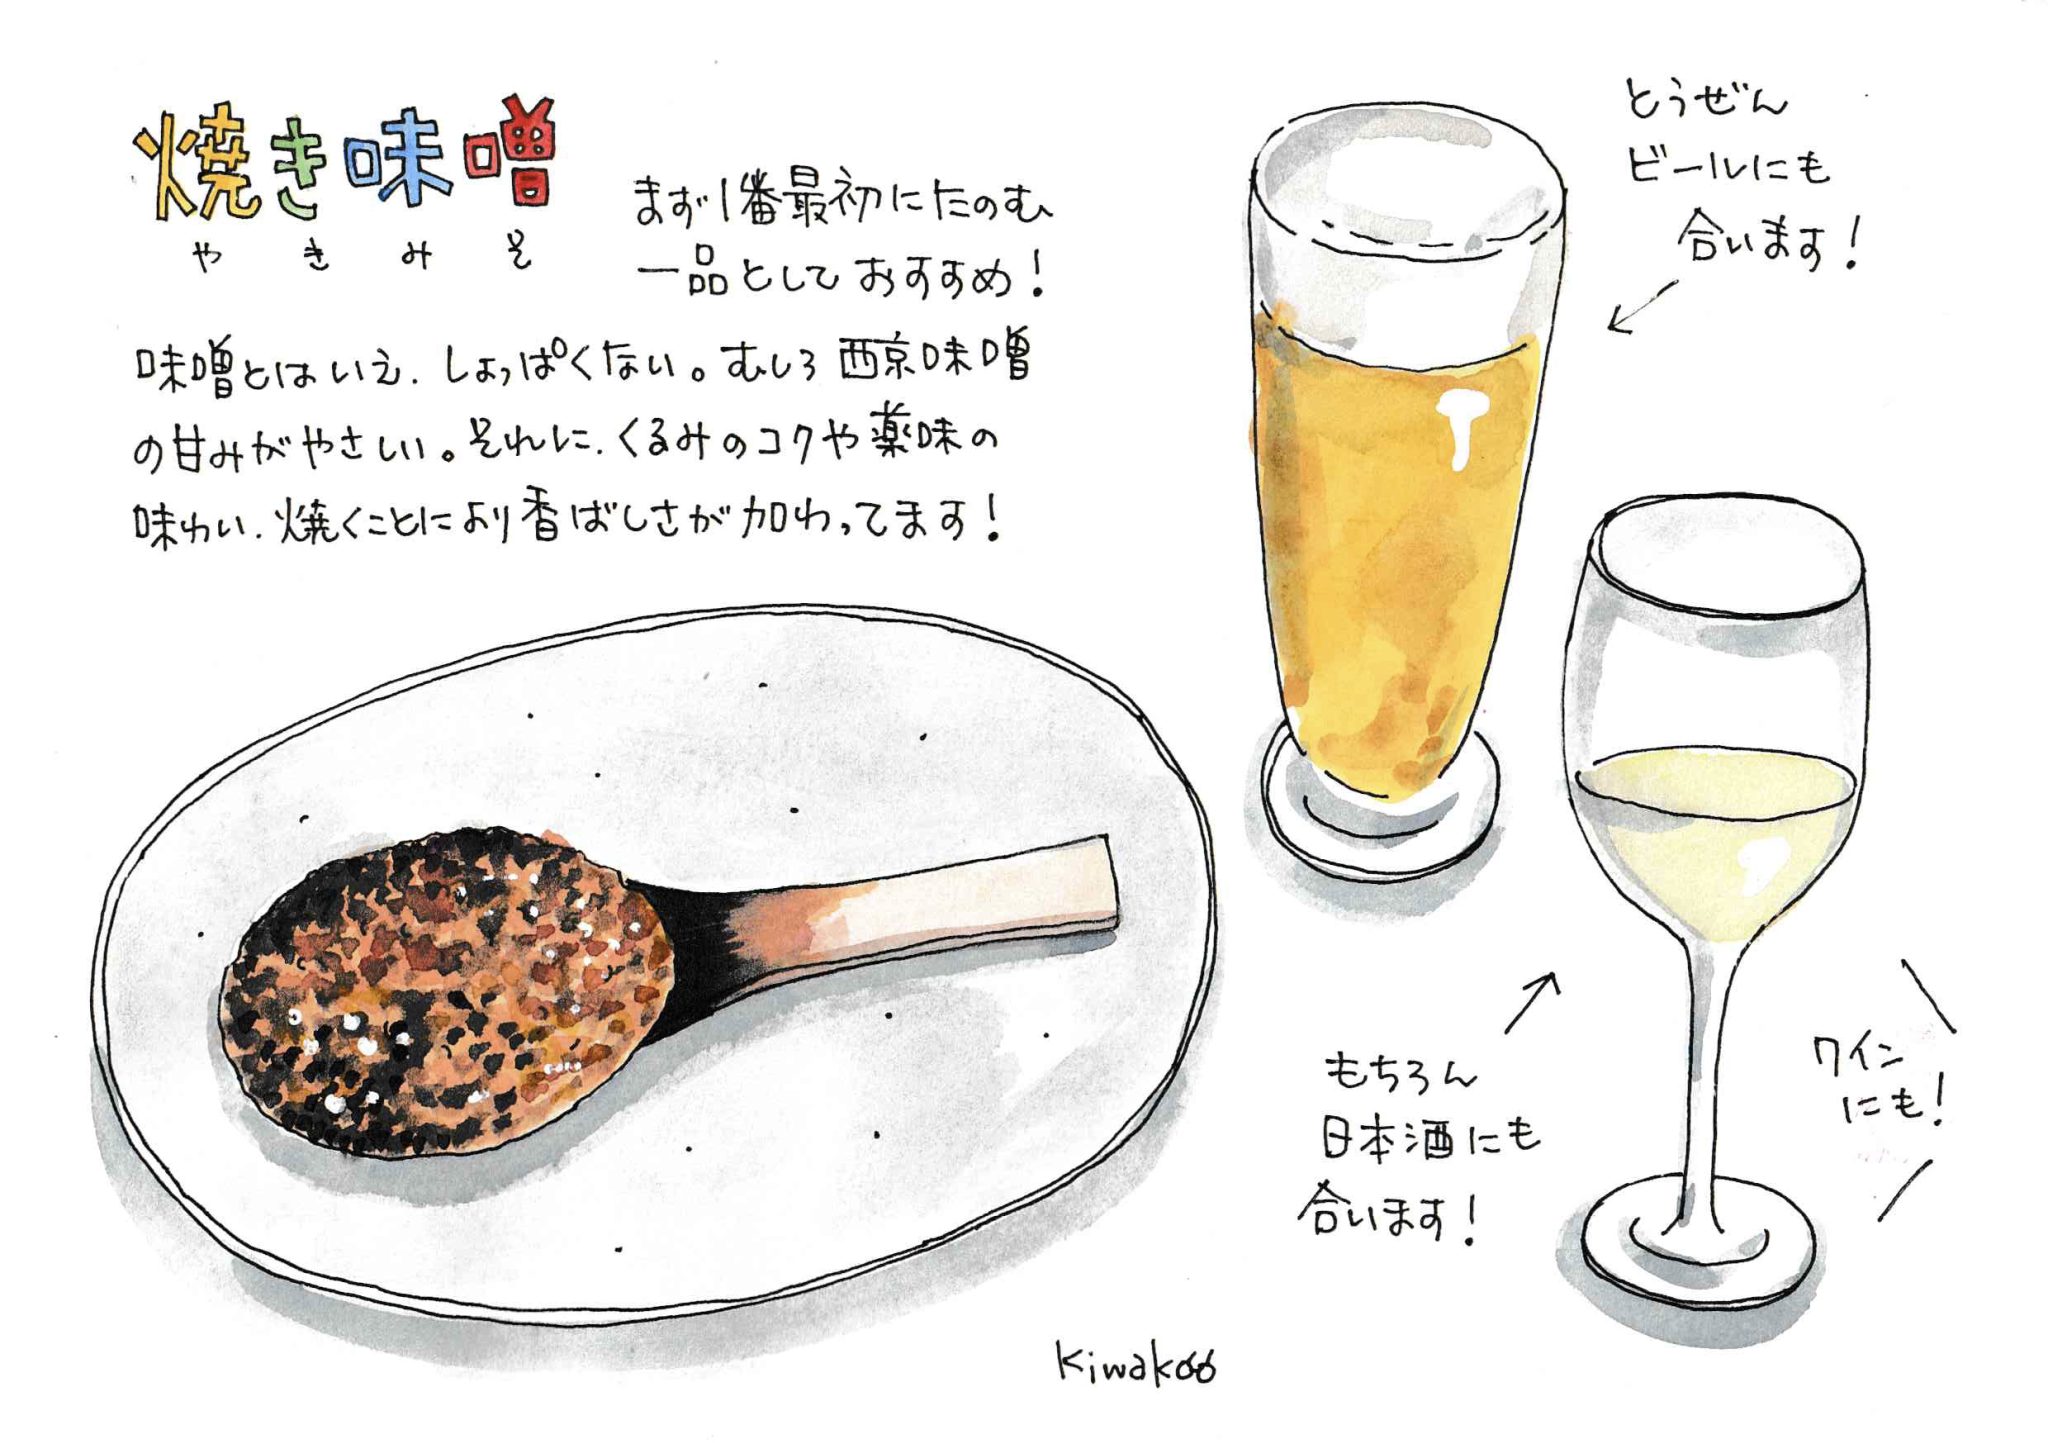 焼き味噌
やきみそ
まず1番最初にたのむ
一品としておすすめ！
味噌とはいえ、しょっぱくない。むしろ西京味噌
の甘みがやさしい。それに、くるみのコクや薬味の
味わい、焼くことにより香ばしさが加わってます！
とうぜん
ビールにも
合います！
もちろん
日本酒にも
合います！
ワイン
にも！
Kiwakoo